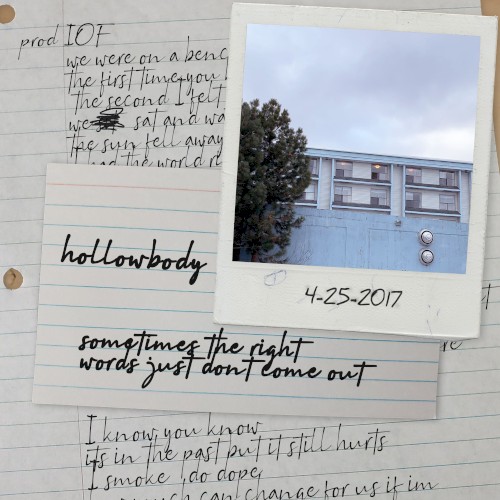 prod IOF
we were on a benc
the first time you
the second I felt
we sat and wa
the sun fell away
had the world re
hollowbody
4-25-2017
sometimes the right
words just dont come out
re
I know you know
its in the past but it still hurts
I smoke I do dope
much can change for us if im